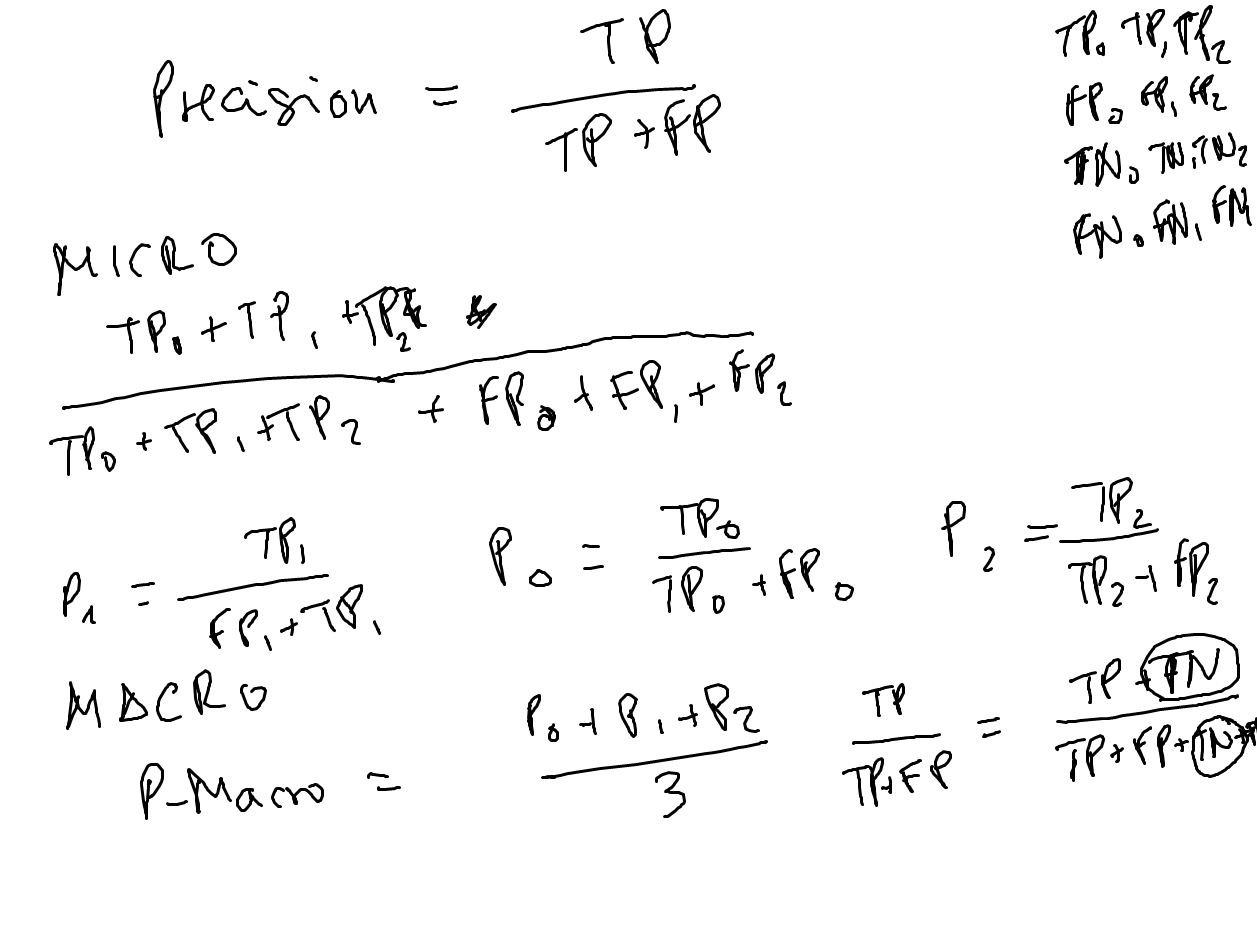 Precision = TP / (TP + FP)
TP0 TP1 TP2
FP0 FP1 FP2
TN0 TN1 TN2
FN0 FN1 FN
MICRO
TP0 + TP1 + TP2
TP0 + TP1 + TP2 + FP0 + FP1 + FP2
P1 = TP1 / (FP1 + TP1)
P0 = TP0 / (TP0 + FP0)
P2 = TP2 / (TP2 + FP2)
MACRO
P-Macro = (P0 + P1 + P2) / 3
TP / (TP + FP) = (TP + TN) / (TP + FP + TN +